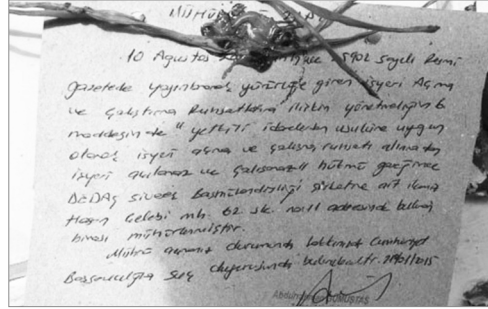 MÜHÜR
10 Ağustos 25902 Sayılı Resmi
gazetede yayınlanarak yürürlüğe giren işyeri Açma
ve Çalıştırma Ruhsatlarına ilişkin yönetmeliğin 6
maddesinde "yetkili idarelerden usulüne uygun
olarak işyeri açma ve çalışma ruhsatı alınmadan
işyeri açılamaz ve çalıştırılamaz" hükmü gereğince
DEDAŞ Siverek Başmühendisliği şirketine ait
Hasan Çelebi mh. 62. sk. no:11 adresinde bulunan
binası mühürlenmiştir.
Mührü açması durumunda hakkınızda Cumhuriyet
Başsavcılığına Suç duyurusunda bulunulacaktır. /2015
GÜMÜŞTAŞ